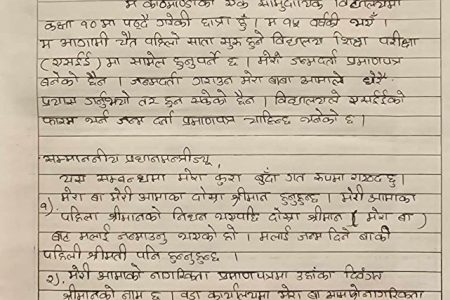 म काठमाडौंको एक सामुदायिक विद्यालयमा
कक्षा १० मा पढ्दै गरेकी छात्रा हुँ । म १५ वर्षकी भएँ ।
म आगामी चैत पहिलो साता सुरू हुने विद्यालय शिक्षा परीक्षा
(एसईई) मा सामेल हुनुपर्ने छ । मेरो जन्मदर्ता प्रमाणपत्र
बनेको छैन । जन्मदर्ता गराउन मेरा बाबा आमाले धेरै
प्रयास गर्नुभयो तर हुन सकेको छैन । विद्यालयले एसईईको
फारम भर्न जन्म दर्ता प्रमाणपत्र चाहिन्छ भनेको छ ।
सम्माननीय प्रधानमन्त्रीज्यू,
यस सम्बन्धमा मेरा कुरा बुँदा गत रूपमा राख्दछु ।
१) मेरा बा मेरी आमाका दोस्रा श्रीमान हुनुहुन्छ । मेरी आमाका
पहिला श्रीमानको निधन भएपछि दोस्रा श्रीमान (मेरा बा)
बाट मलाई जन्माउनु भएको हो । मलाई जन्म दिने बाकी
पहिली श्रीमती पनि हुनुहुन्छ ।
२) मेरी आमाको नागरिकता प्रमाणपत्रमा उहाँका दिवंगत
श्रीमानको नाम छ । वडा कार्यालयमा मेरा बा आमाले नागरिकता